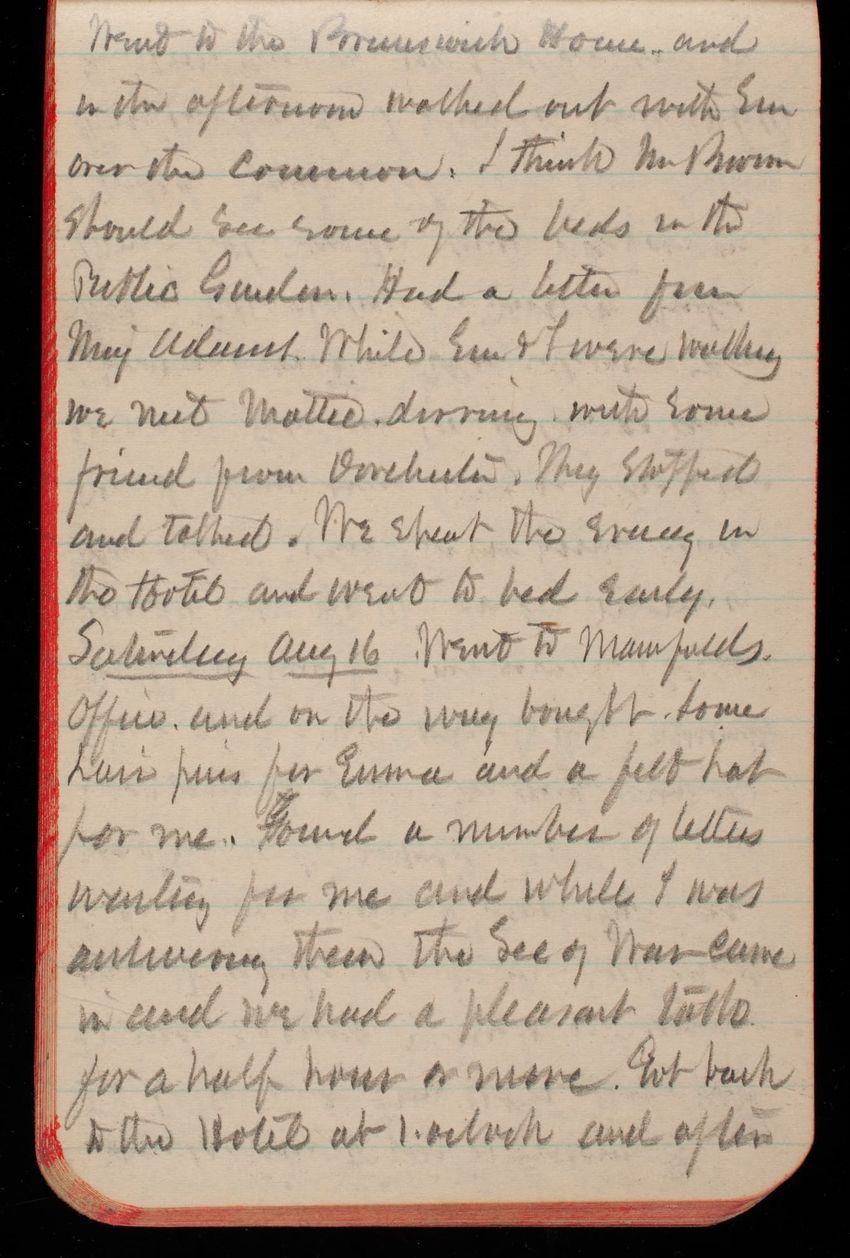 Went to the Brunswick House. and
in the afternoon walked out with Em
over the Common. I think Mr Brown
should see some of the beds in the
Public Garden. Had a letter from
Maj Adams. While Em & I were walking
we met Mattie. driving with some
friend from Dorchester. They stopped
and talked. We spent the evening in
the Hotel and went to bed early.
Saturday Aug 16 Went to Manifolds.
Office. and on the way bought some
hair pins for Emma and a felt hat
for me. Found a number of letters
waiting for me and while I was
answering them the Sec of War came
in and we had a pleasant talk
for a half hour or more. Got back
to the Hotel at 1. oclock and after